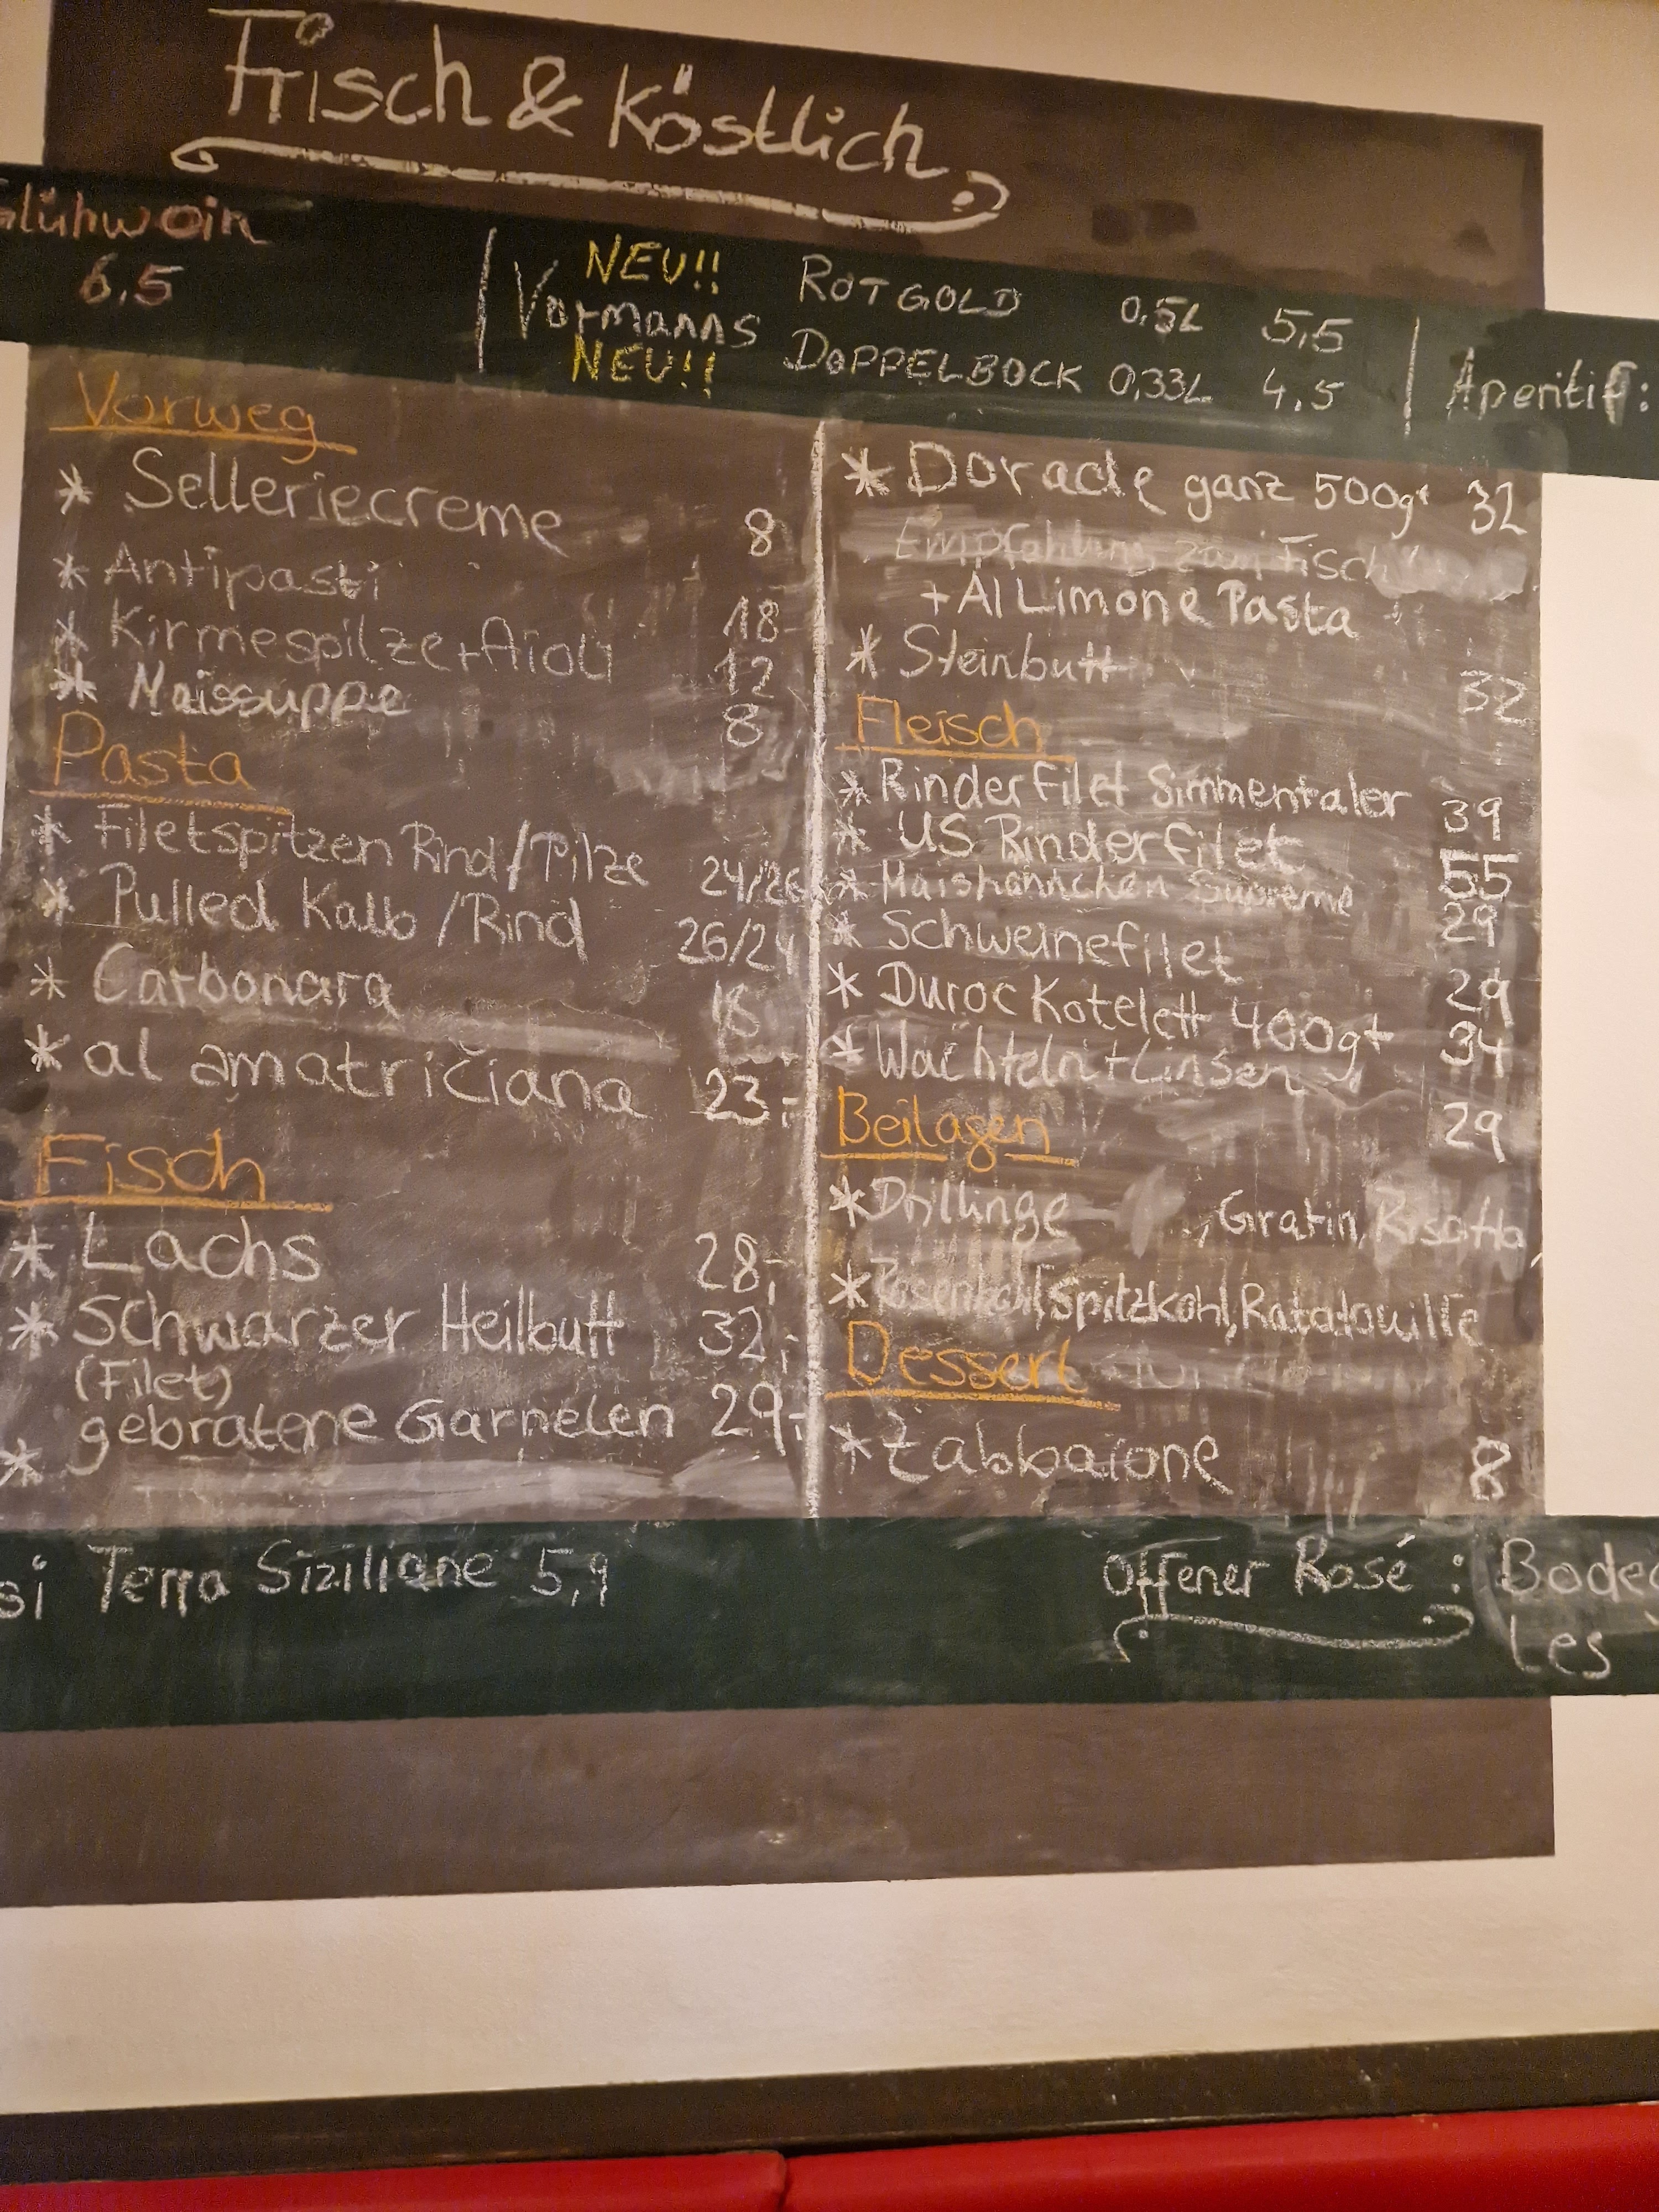 Frisch & Köstlich
Glühwein
6,5
NEU!!
Vormanns
NEU!!
ROTGOLD 0,5L 5,5
DOPPELBOCK 0,33L 4,5
Aperitif:
Vorweg
* Selleriecreme 8
* Antipasti 18
* Kirmespilze+Aioli 12
* Maissuppe 8
Pasta
* Filetspitzen Rind/Pilze 24/26
* Pulled Kalb/Rind 26/24
* Carbonara
* al amatriciana 23,-
Fisch
* Lachs 28,-
* Schwarzer Heilbutt 32,-
(Filet)
* gebratene Garnelen 29,-
* Dorade ganz 500gr 32
Empfehlung zum Fisch
+Al Limone Pasta
* Steinbutt 32
Fleisch
* Rinderfilet Simmentaler 39
* US Rinderfilet 55
* Maishähnchen Supreme 29
* Schweinefilet 29
* Duroc Kotelett 400gr 34
* Wachteln+Linsen 29
Beilagen
* Drillinge , Gratin, Risotto,
* Rosenkohl, Spitzkohl, Ratatouille
Dessert
* Zabbaione 8
si Terra Siziliane 5,9
Offener Rosé : Bodeg
Les